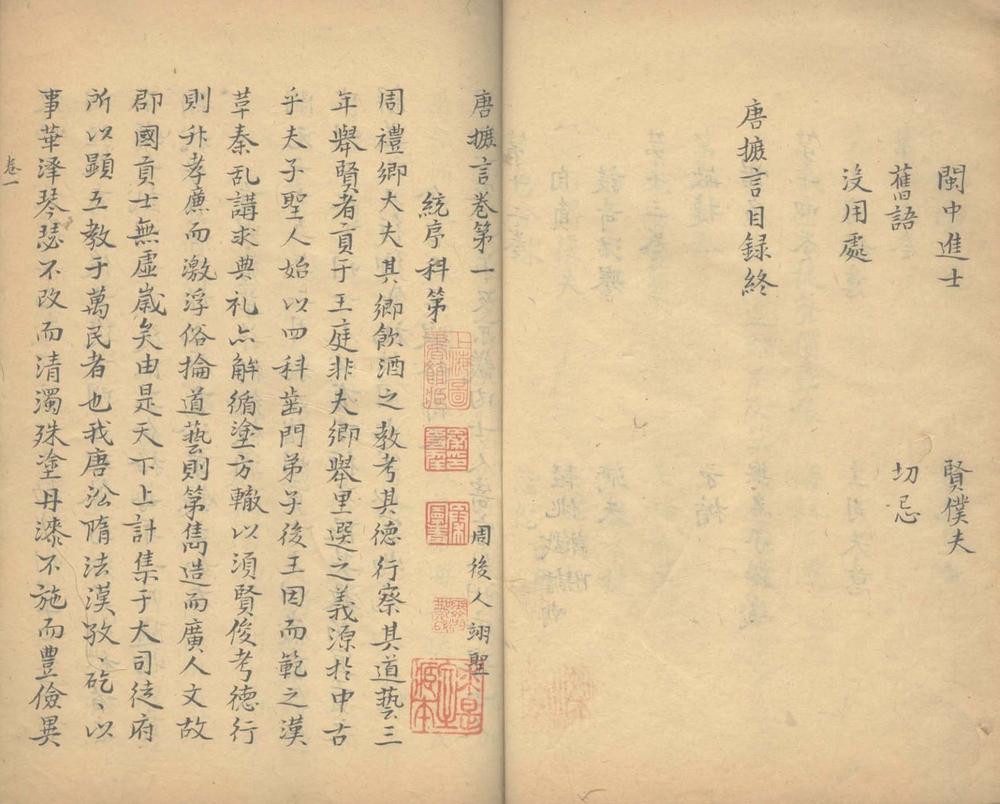 閩中進士 賢僕夫
舊語 切忌
沒用處
唐摭言目録終
唐摭言卷第一 周後人 翊聖
統序科第
周禮鄉大夫其鄉飲酒之教考其德行察其道藝三
年舉賢者貢于王庭非夫鄉舉里選之義源於中古
乎夫子聖人始以四科齒門弟子後王因而範之漢
草秦乱講求典礼亦解循塗方轍以須賢俊考德行
則升孝廉而激浮俗掄道藝則第雋造而廣人文故
郡國貢士無虛歲矣由是天下上計集于大司徒府
所以顯五教于萬民者也我唐沿隋法漢孜〻矻〻以
事華澤琴瑟不改而清濁殊塗丹漆不施而豐儉異
卷一
上海圖書館藏